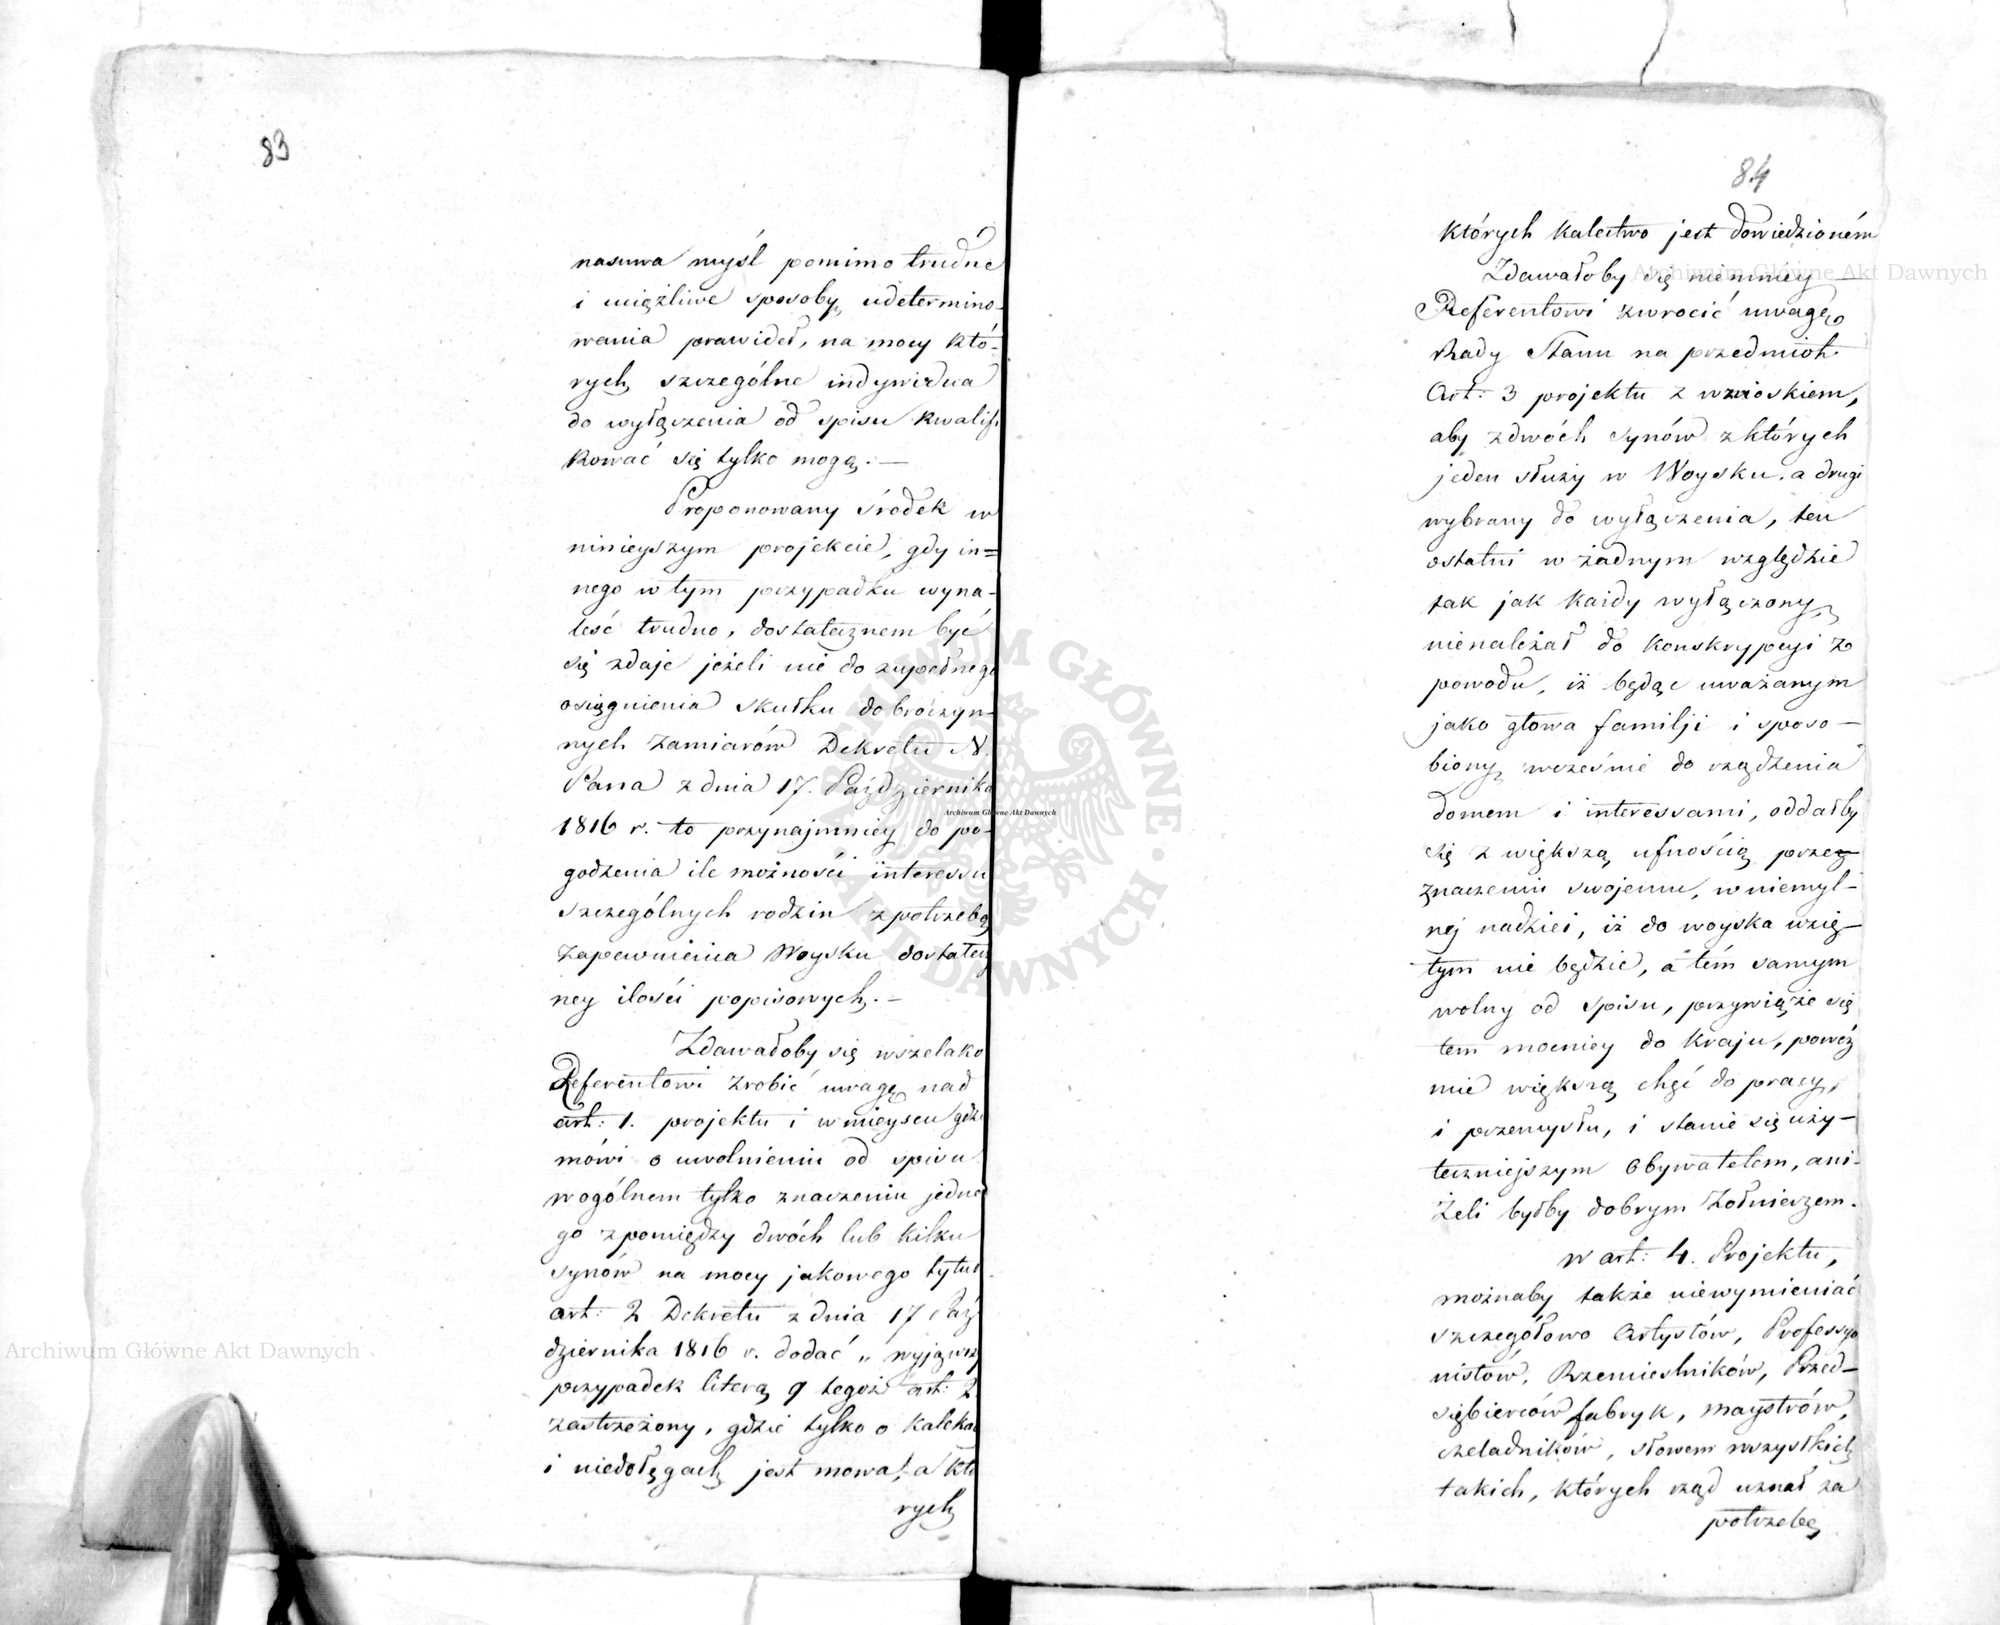 83
nasuwa myśl pomimo trudne
i uciążliwe sposoby udetermino-
wania prawideł, na mocy któ-
rych szczególne indywidua
do wyłączenia od spisu kwalifi
kować się tylko mogą. —
Proponowany środek w
ninieyszym projekcie, gdy in=
nego w tym przypadku wyna-
leść trudno, dostatecznem być
się zdaje jeżeli nie do zupełnego
osiągnienia skutku dobroczyn-
nych zamiarów Dekretu N.
Pana z dnia 17. Października
1816 r. to przynajmniey do po-
godzenia ile możności interessu
szczególnych rodzin z potrzebą
zapewnienia Woysku dostatecz
ney ilości popisowych. —
Zdawałoby się wszelako
Referentowi zrobić uwagę nad
art: 1. projektu i w mieyscu gdzie
mówi o uwolnieniu od spisu
w ogólnem tylko znaczeniu jedne
go z pomiędzy dwóch lub kilku
synów na mocy jakowego tytuł
art: 2 Dekretu z dnia 17 Paź
dziernika 1816 r. dodać „ wyjąwszy
przypadek literą g tegoż art: 2.
zastrzeżony, gdzie tylko o kalekac
i niedołęgach jest mowa, a któ
rych
84
których kalectwo jest dowiedzioném
Zdawałoby się niemniey —
Referentowi zwrocić uwagę
Rady Stanu na przedmiot
Art: 3 projektu z wnioskiem,
aby z dwóch synów z których
jeden służy w Woysku, a drugi
wybrany do wyłączenia, ten
ostatni w żadnym względzie
tak jak każdy wyłączony,
nienależał do konskrypcyi z
powodu, iż będąc uważanym
jako głowa familji i sposo—
biony wcześnie do rządzenia
domem i interessami, oddałby
się z większą ufnością prze
znaczeniu swojemu, w niemyl—
nej nadziei, iż do woyska wzię—
tym nie będzie, a tém samym
wolny od spisu, przywiąże się
tem mocniey do kraju, powéź
mie większą chęć do pracy,
i przemysłu, i stanie się uży—
teczniejszym Obywatelem, ani-
żeli byłby dobrym Żołnierzem.
w art: 4. Projektu,
możnaby także niewymieniać
szczegółowo Artystów, Professyo
nistów, Rzemieslników, Przed—
siębierców fabryk, maystrów,
czeladników, słowem wszystkich
takich, których rząd uznał za
potrzebę
Archiwum Główne Akt Dawnych
Archiwum Główne Akt Dawnych
Archiwum Główne Akt Dawnych
ARCHIWUM GŁÓWNE · AKT DAWNYCH ·